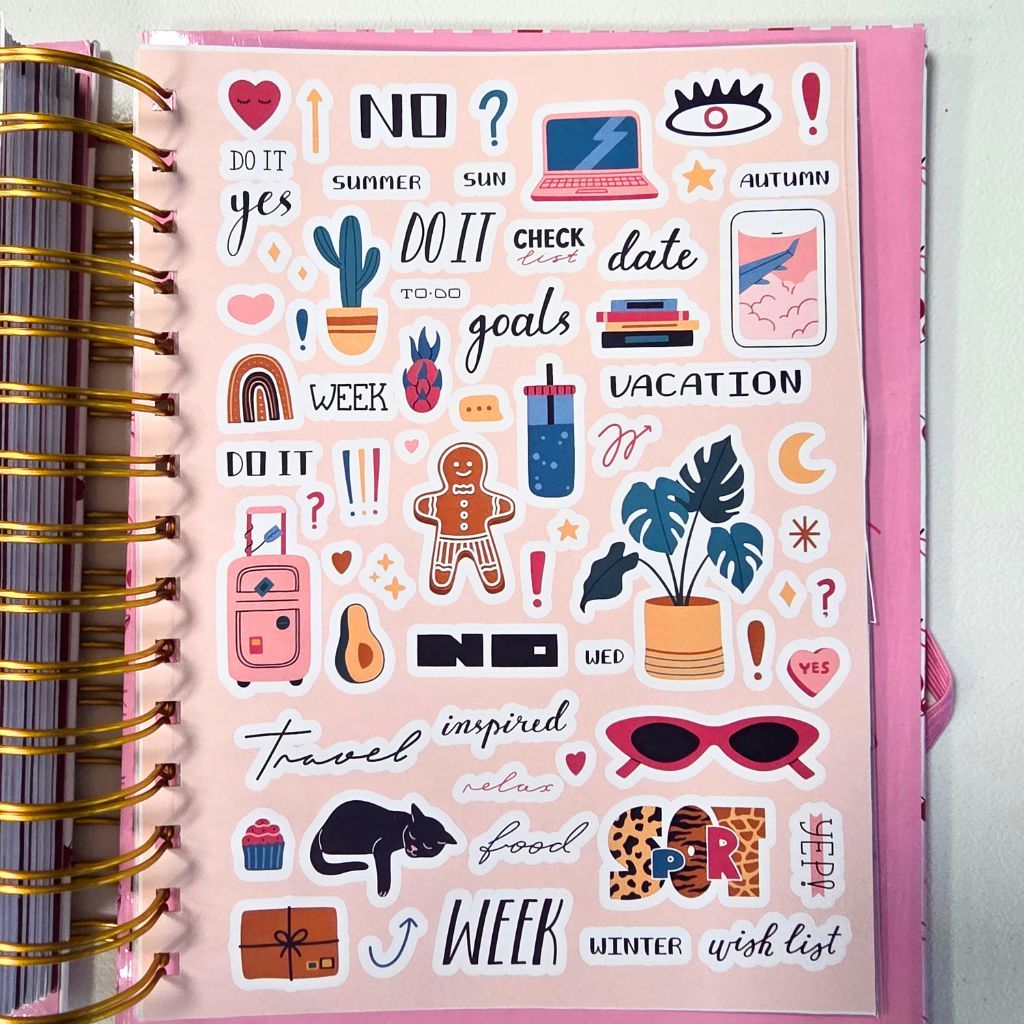 NO
DO IT
SUMMER
SUN
AUTUMN
yes
DO IT
CHECK
list
date
TO-DO
goals
WEEK
VACATION
DO IT
NO
WED
YES
Travel
inspired
relax
food
SPORT
YEP!
WEEK
WINTER
wish list